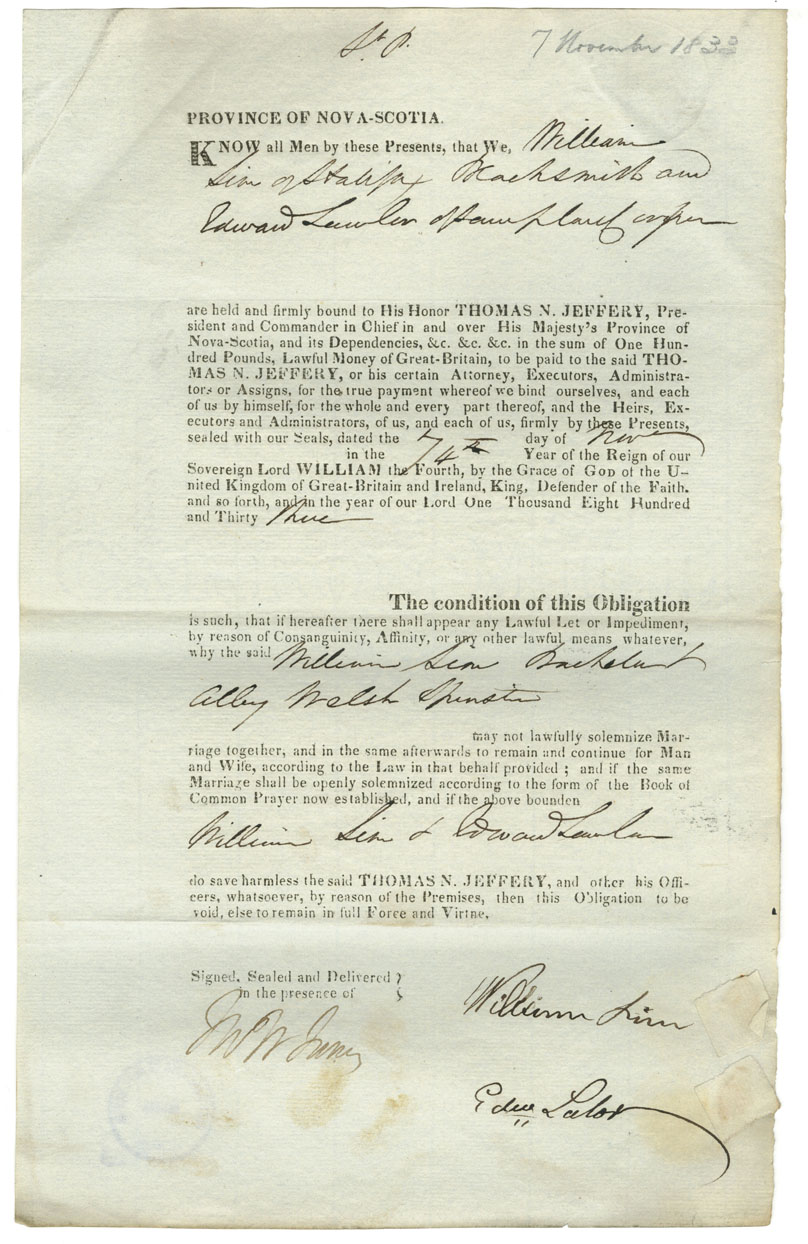 St P.
7 November 1833
PROVINCE OF NOVA-SCOTIA.
KNOW all Men by these Presents, that We, William
Sim of Halifax Blacksmith and
Edward Lawlor of same place Cooper
are held and firmly bound to His Honor THOMAS N. JEFFERY, Pre-
sident and Commander in Chief in and over His Majesty's Province of
Nova-Scotia, and its Dependencies, &c. &c. &c. in the sum of One Hun-
dred Pounds, Lawful Money of Great-Britain, to be paid to the said THO-
MAS N. JEFFERY, or his certain Attorney, Executors, Administra-
tors or Assigns, for the true payment whereof we bind ourselves, and each
of us by himself, for the whole and every part thereof, and the Heirs, Ex-
ecutors and Administrators, of us, and each of us, firmly by these Presents,
sealed with our Seals, dated the 7 day of Novr
in the 4th Year of the Reign of our
Sovereign Lord WILLIAM the Fourth, by the Grace of GOD of the U-
nited Kingdom of Great-Britain and Ireland, King, Defender of the Faith.
and so forth, and in the year of our Lord One Thousand Eight Hundred
and Thirty three
The condition of this Obligation
is such, that if hereafter there shall appear any Lawful Let or Impediment,
by reason of Consanguinity, Affinity, or any other lawful means whatever,
why the said William Sim Bachelor &
Alley Welsh Spinster
may not lawfully solemnize Mar-
riage together, and in the same afterwards to remain and continue for Man
and Wife, according to the Law in that behalf provided ; and if the same
Marriage shall be openly solemnized according to the form of the Book of
Common Prayer now established, and if the above bounden
William Sim & Edward Lawlor
do save harmless the said THOMAS N. JEFFERY, and other his Offi-
cers, whatsoever, by reason of the Premises, then this Obligation to be
void, else to remain in full Force and Virtne.
Signed, Sealed and Delivered }
in the presence of }
William Sim
Edwd Lalor